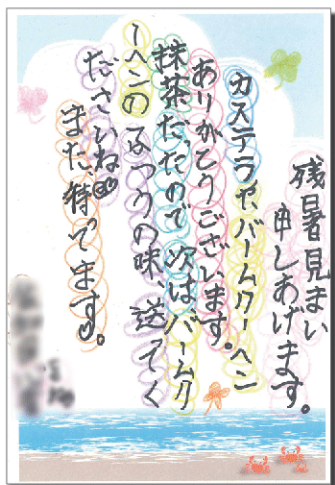 残暑見まい
申しあげます。
カステラや、バームクーヘン
ありがとうございます。
抹茶だったので次はバームク
ーヘンの ふつうの味 送ってく
ださいね
また、待ってます。